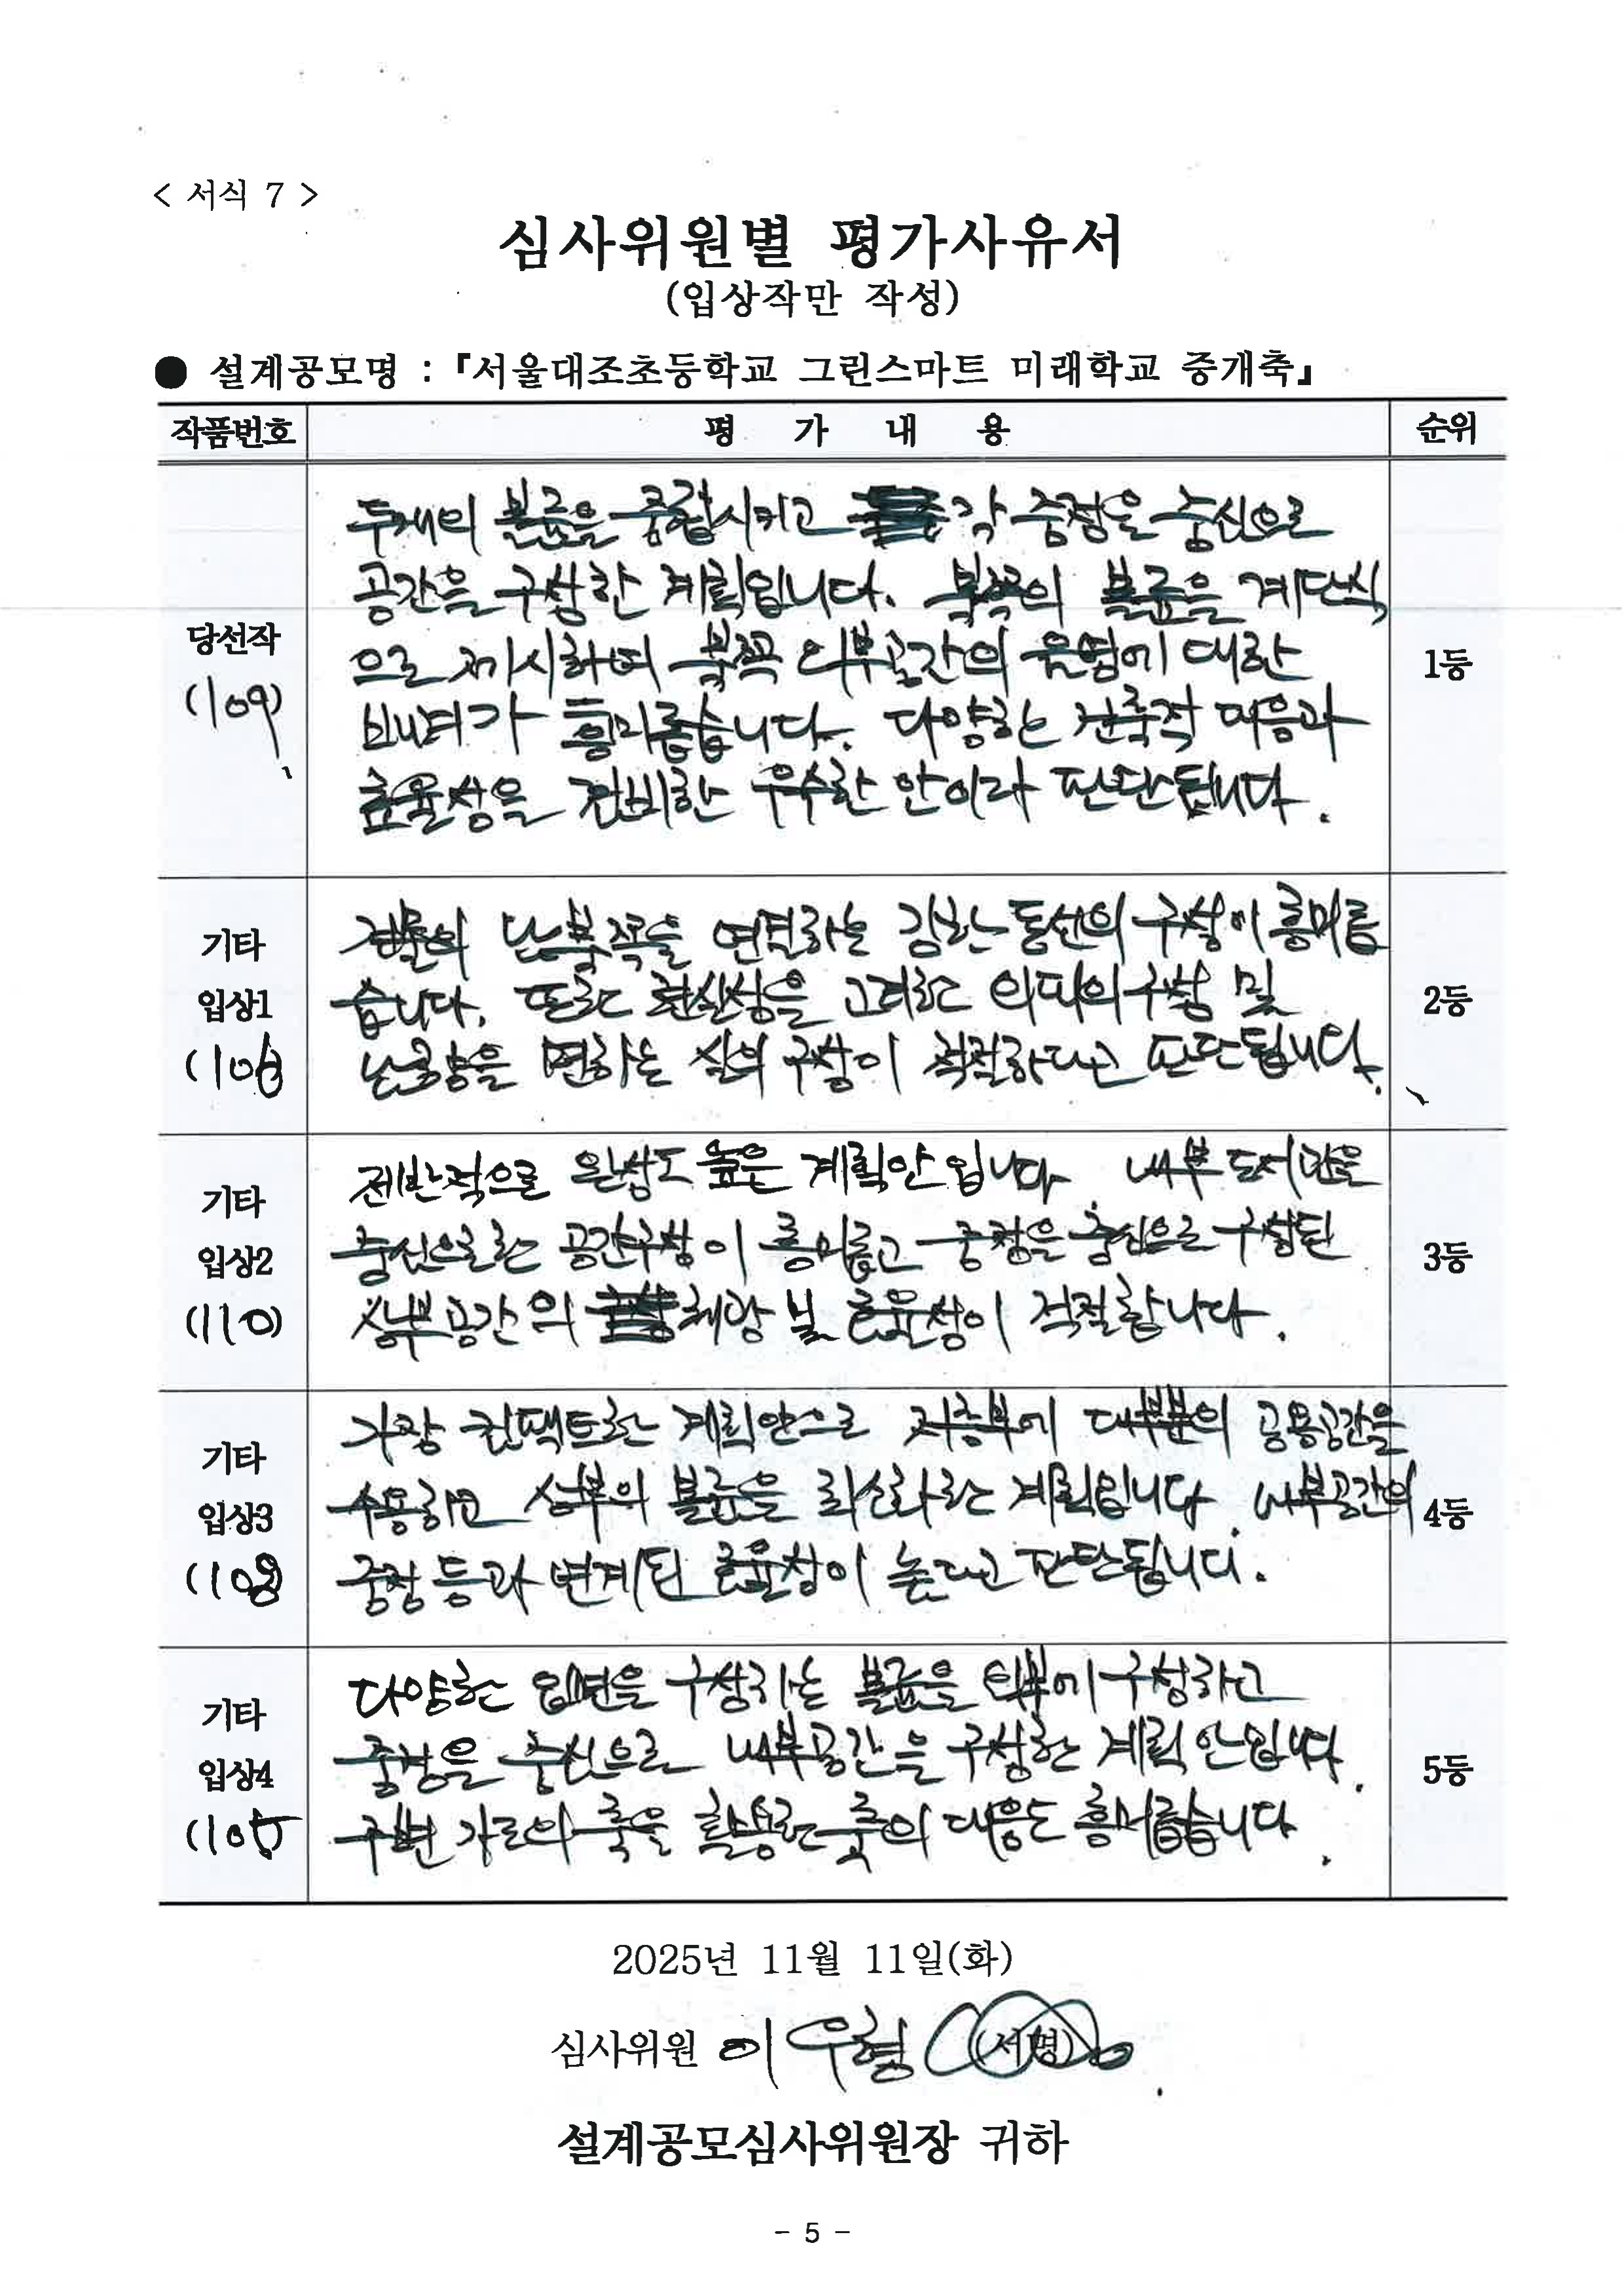 < 서식 7 >
심사위원별 평가사유서
(입상작만 작성)
● 설계공모명 : 『서울대조초등학교 그린스마트 미래학교 증개축』
작품번호 평 가 내 용 순위
당선작
(109)
두개의 볼륨을 중첩시키고 각 중정을 중심으로
공간을 구상한 계획입니다. 북쪽의 볼륨을 계단식
으로 제시하여 북쪽 외부공간의 음영에 대한
배려가 흥미롭습니다. 다양한 건축적 대응과
효율성을 겸비한 우수한 안이라 판단됩니다.
1등
기타
입상1
(106)
건물의 남북쪽을 연결하는 강한 동선의 구성이 흥미롭
습니다. 또한 현실성을 고려한 외피의 구성 및
남향을 면하는 실의 구성이 적절하다고 판단됩니다.
2등
기타
입상2
(110)
전반적으로 완성도 높은 계획안입니다. 내부 도서관을
중심으로한 공간구성이 흥미롭고 중정을 중심으로 구성된
상부공간의 채광 및 효율성이 적절합니다.
3등
기타
입상3
(108)
가장 컴팩트한 계획안으로 저층부에 대부분의 공용공간을
수용하고 상부의 볼륨을 최소화한 계획입니다. 내부공간의
중정 등과 연계된 효율성이 높다고 판단됩니다.
4등
기타
입상4
(105)
다양한 입면을 구성하는 볼륨을 외부에 구성하고
중정을 중심으로 내부공간을 구성한 계획안입니다.
주변 가로의 축을 활용한 축의 대응도 흥미롭습니다.
5등
2025년 11월 11일(화)
심사위원 이우형 (서명)
설계공모심사위원장 귀하
- 5 -